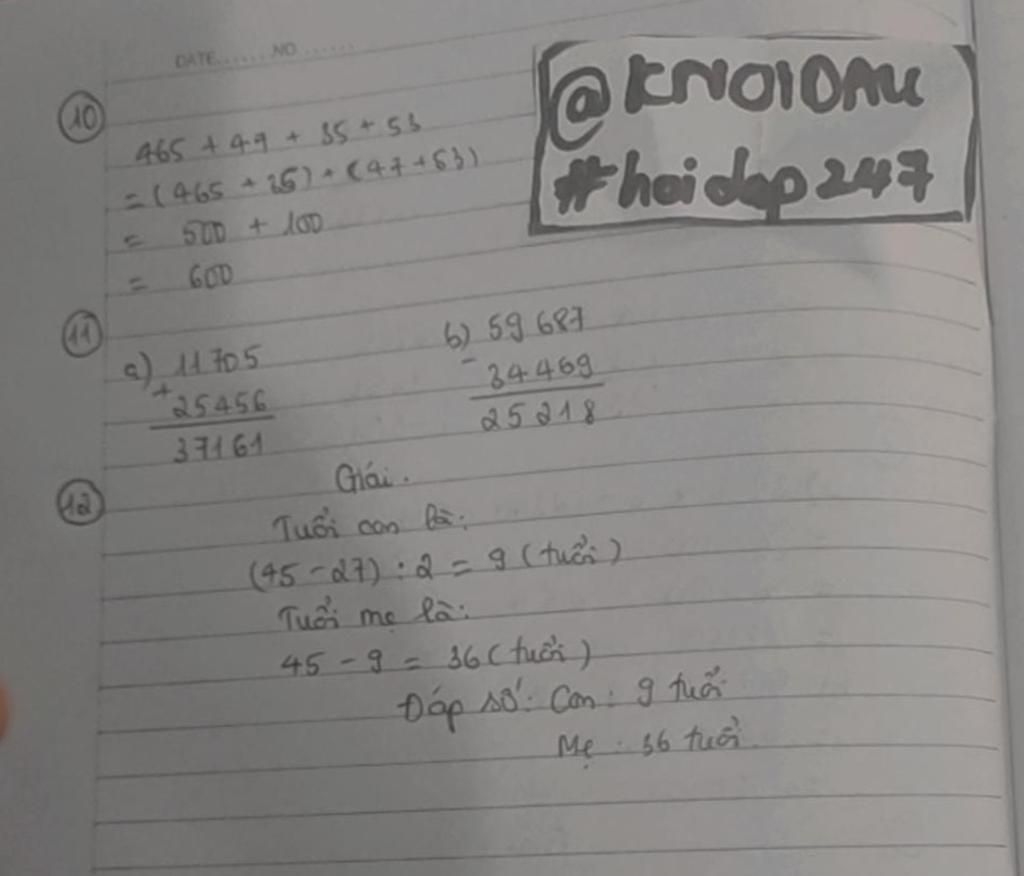 DATE.......NO.......
@KNOIDAU
#hoidap247
10
465 + 47 + 35 + 53
= (465 + 35) + (47 + 53)
= 500 + 100
= 600
11
a) 11705
+ 25456
37161
b) 59 687
- 34 469
25 218
12
Giải.
Tuổi con là:
(45 - 27) : 2 = 9 (tuổi)
Tuổi mẹ là:
45 - 9 = 36 (tuổi)
Đáp số: Con: 9 tuổi
Mẹ: 36 tuổi.